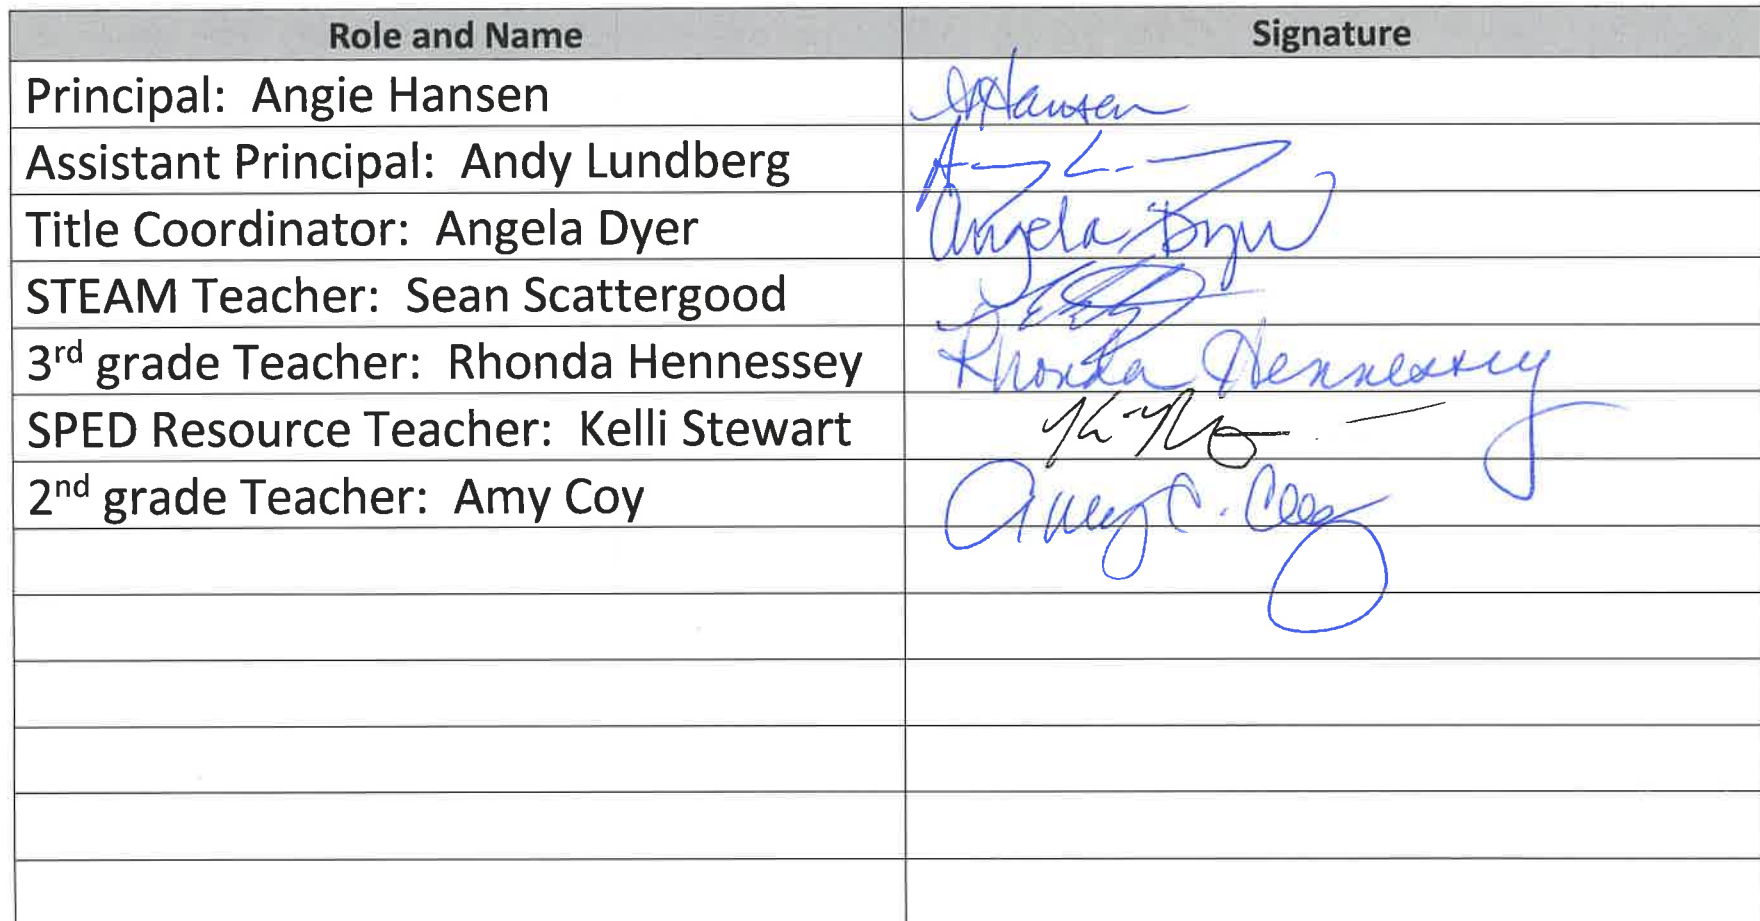 Role and Name Signature
Principal: Angie Hansen AHansen
Assistant Principal: Andy Lundberg
Title Coordinator: Angela Dyer Angela Dyer
STEAM Teacher: Sean Scattergood
3rd grade Teacher: Rhonda Hennessey Rhonda Hennessey
SPED Resource Teacher: Kelli Stewart
2nd grade Teacher: Amy Coy Amy C. Coy